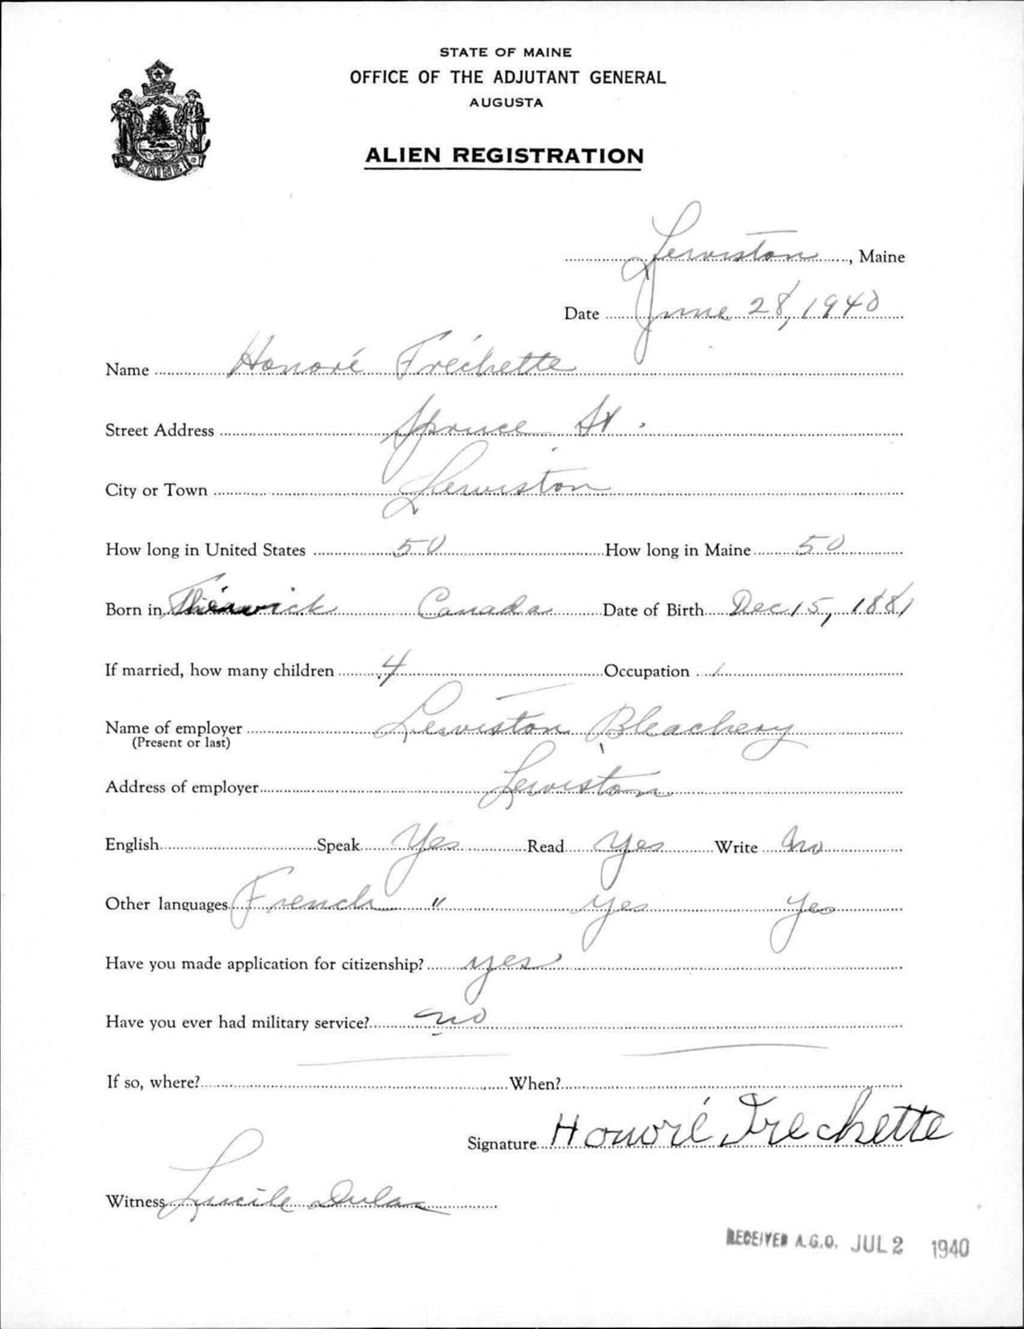 STATE OF MAINE
OFFICE OF THE ADJUTANT GENERAL
AUGUSTA
ALIEN REGISTRATION
MAINE
Lewiston, Maine
Date June 28, 1940
Name Honoré Fréchette
Street Address Spruce St.
City or Town Lewiston
How long in United States 50 How long in Maine 50
Born in Canada Date of Birth Dec 15, 1881
If married, how many children 4 Occupation
Name of employer Lewiston Bleachery
(Present or last)
Address of employer Lewiston
English Speak Yes Read Yes Write No
Other languages French " yes yes
Have you made application for citizenship? yes
Have you ever had military service? no
If so, where? When?
Signature Honoré Frechette
Witness Lucile Dulac
RECEIVED A.G.O. JUL 2 1940